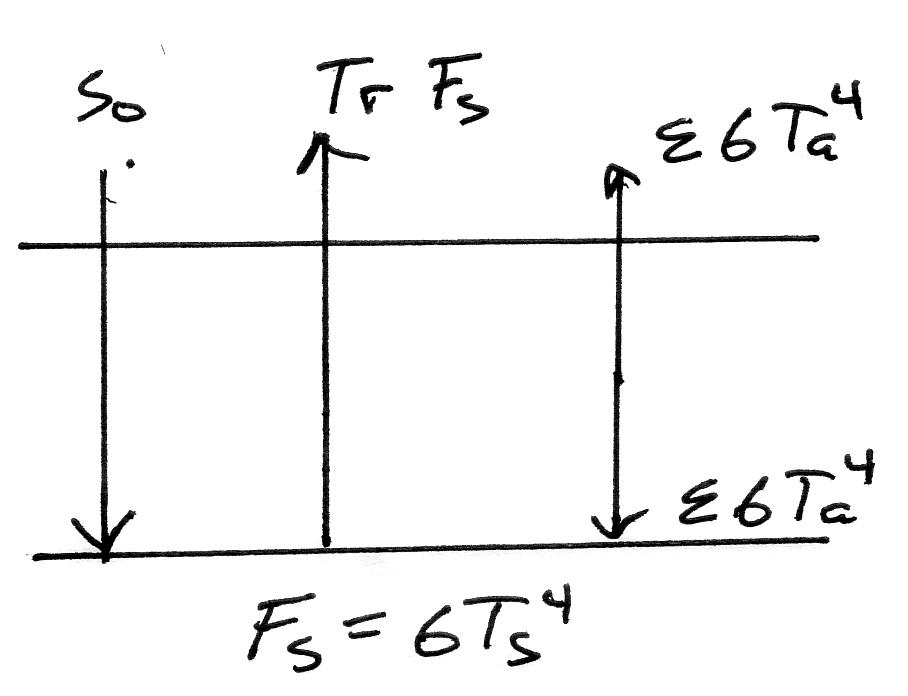 S₀
Tr Fₛ
εσTₐ⁴
εσTₐ⁴
Fₛ = σTₛ⁴